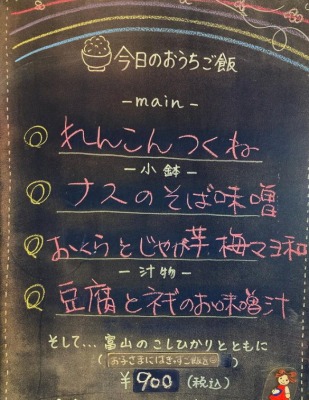 今日のおうちご飯
-main-
れんこんつくね
-小鉢-
ナスのそば味噌
おくらとじゃが芋 梅マヨ和
-汁物-
豆腐とネギのお味噌汁
そして... 富山のこしひかりとともに
¥900 (税込)